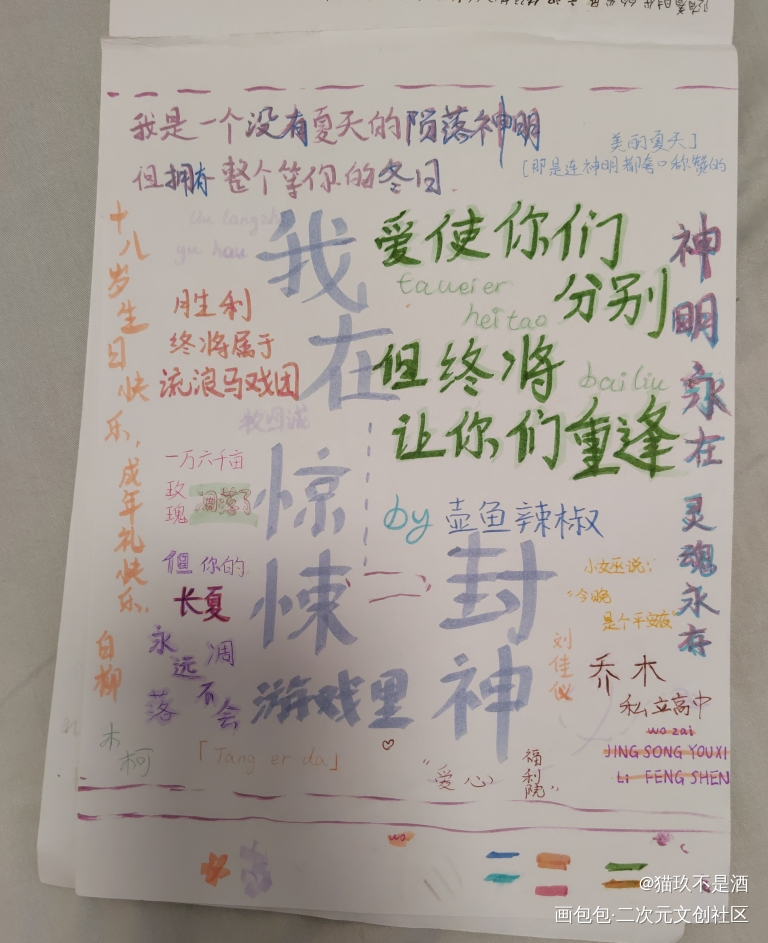 我是一个没有夏天的陨落神明
但拥有整个等你的冬日.
美丽夏天]
[那是连神明都会口称赞的
十八岁生日快乐,成年礼快乐.
白柳
yu hou
胜利
终将属于
流浪马戏团
牧四诚
一万六千亩
玫瑰凋落了
但你的
长夏
永远不会凋落
木柯
「Tang er da」
我在
惊悚
游戏里
封神
爱使你们
分别
taweier
heitao
但终将
bailiu
让你们重逢
by 壶鱼辣椒
神明永在 灵魂永存
小女巫说:
“今晚
是个平安夜”
刘佳仪
乔木
私立高中
wo zai
JING SONG YOUXI
Li FENG SHEN
“爱心
福利院”
wo
@猫玖不是酒
画包包·二次元文创社区